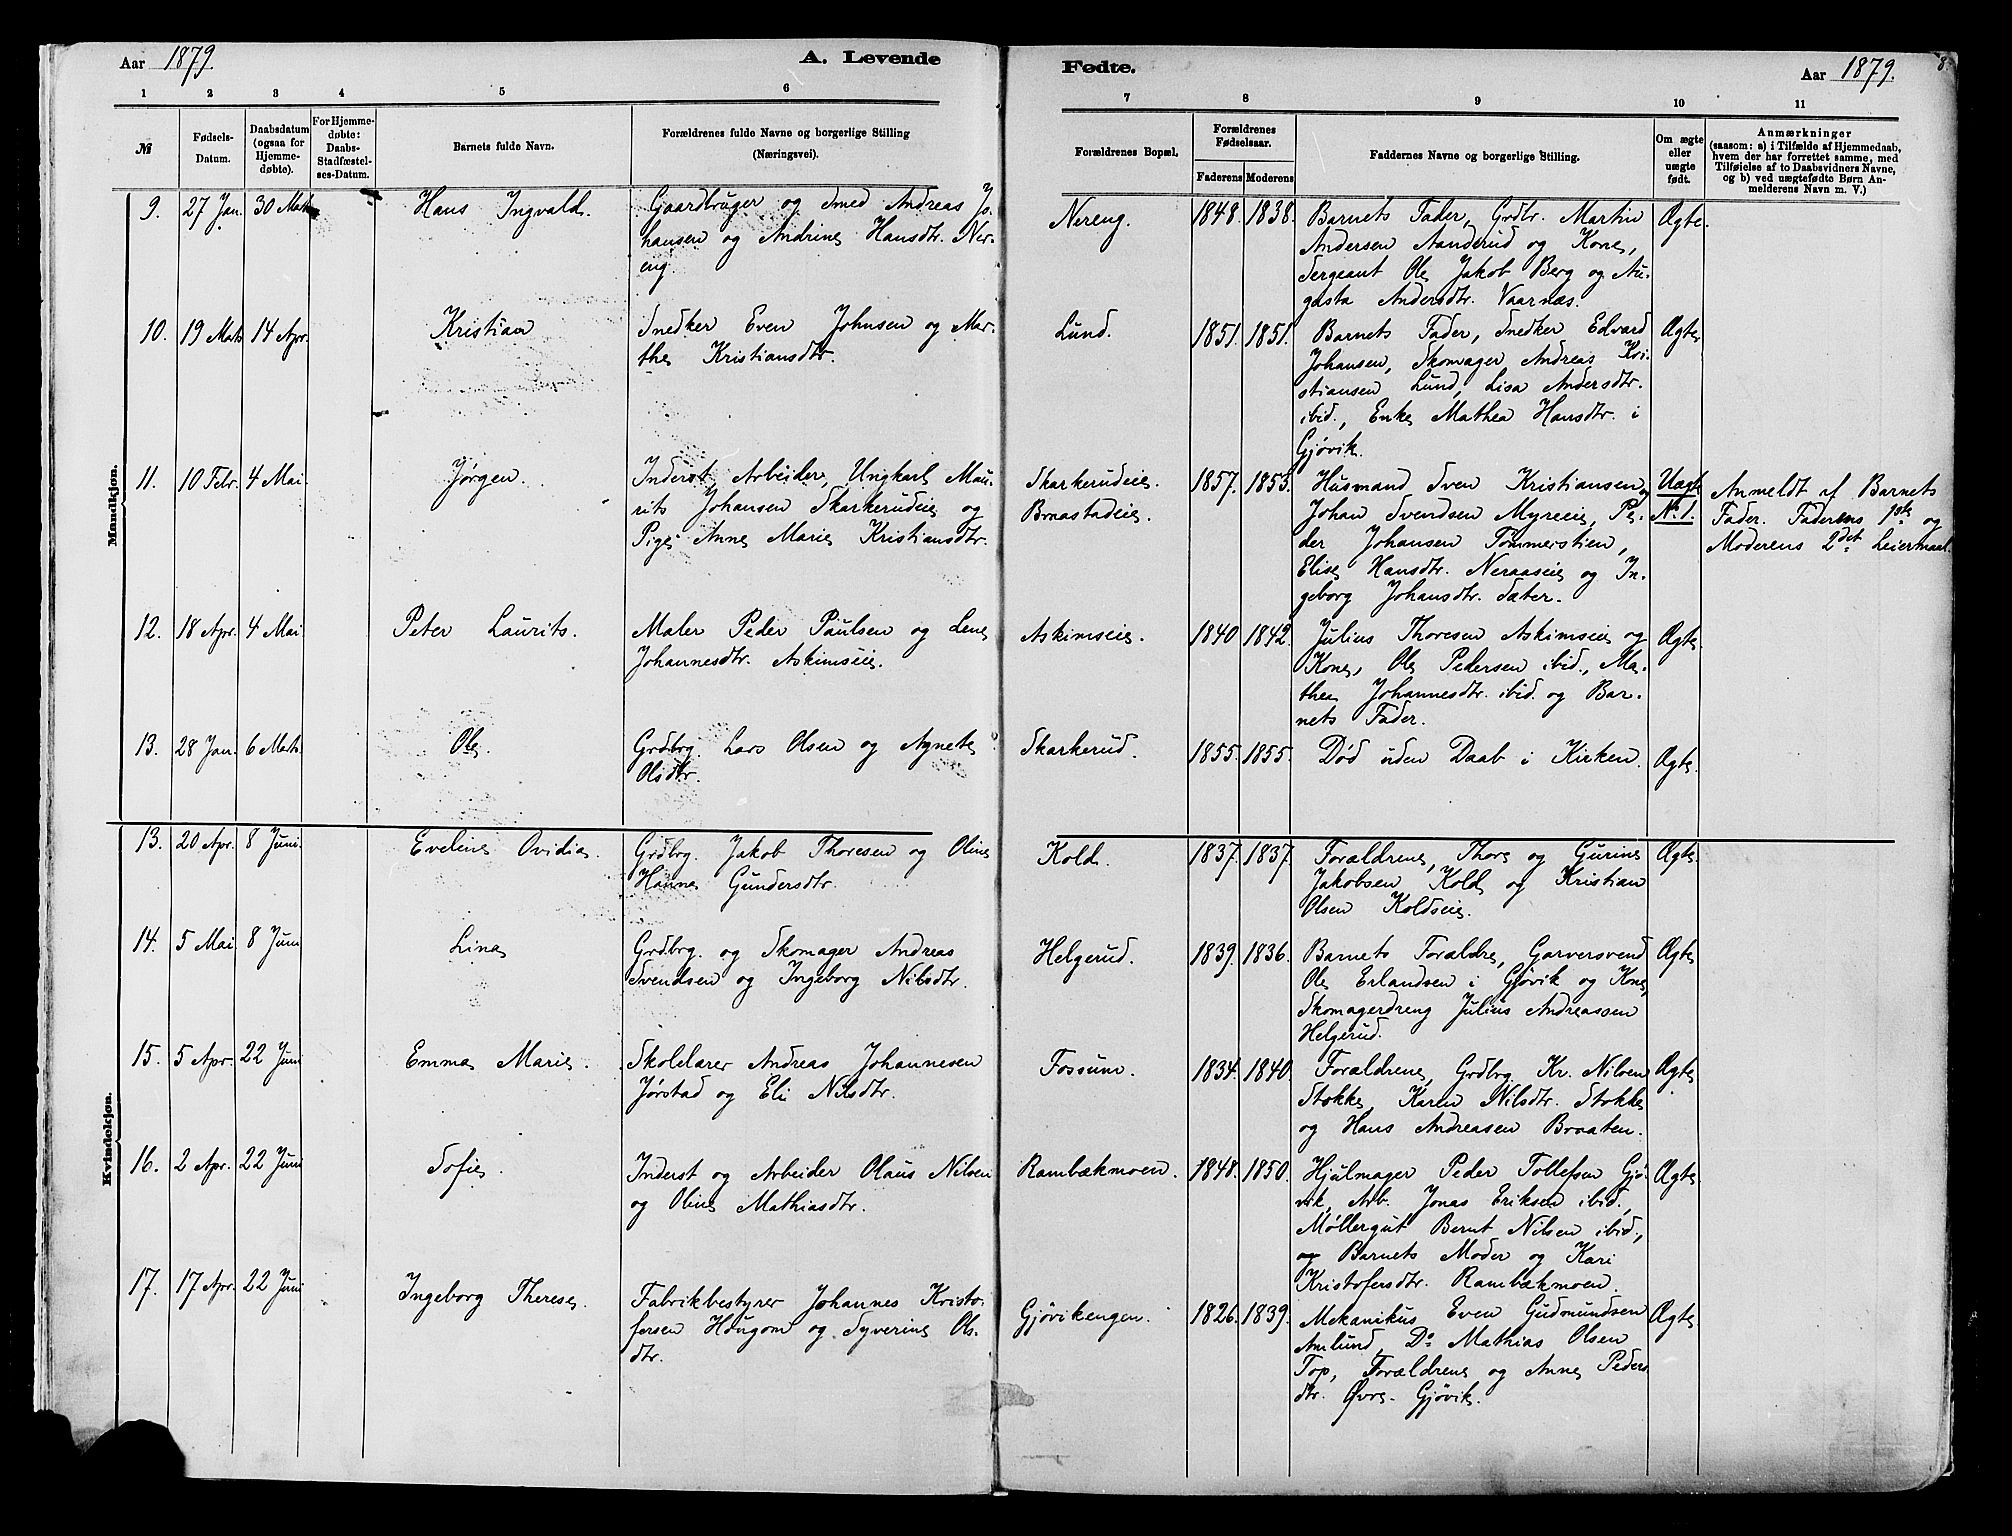 Aar 1879. A. Levende
1 2 3 4 5 6
№ Fødsels-Datum. Daabsdatum (ogsaa for Hjemmedøbte). For Hjemmedøbte: Daabs-Stadfæstelses-Datum. Barnets fulde Navn. Forældrenes fulde Navne og borgerlige Stilling (Næringsvei).
Mandkjøn.
9. 27 Jan. 30 Mats Hans Ingvald. Gaardbruger og Smed Andreas Jo-
hansen og Andrine Hansdtr. Ner-
eng.
10. 19 Mats 14 Apr. Kristian Snedker Even Johnsen og Mar-
the Kristiansdtr.
11. 10 Febr. 4 Mai. Jørgen. Inderst, Arbeider, Ungkarl Mau-
rits Johansen Skarkerudeie og
Pige Anne Marie Kristiansdtr.
12. 18 Apr. 4 Mai Peter Laurits. Maler Peder Paulsen og Lene
Johannesdtr. Askimseie.
13. 28 Jan. 6 Mats. Ole. Grdbrg. Lars Olsen og Agnete
Olsdtr.
Kvindekjøn.
13. 20 Apr. 8 Juni. Eveline Ovidia. Grdbrg. Jakob Thoresen og Oline
Hanna Gundersdtr.
14. 5 Mai 8 Juni Lina Grdbrg. og Skomager Andreas
Svendsen og Ingeborg Nilsdtr.
15. 5 Apr. 22 Juni Emma Marie. Skolelærer Andreas Johannesen
Jørstad og Eli Nilsdtr.
16. 2 Apr. 22 Juni Sofie. Inderst og Arbeider Olaus Nilsen
og Oline Mathiasdtr.
17. 17 Apr. 22 Juni Ingeborg Therese. Fabrikbestyrer Johannes Kristo-
fersen Haugom og Syverine Ols-
dtr.
Fødte. Aar 1879. 8.
7 8 9 10 11
Forældrenes Bopæl. Forældrenes Fødselsaar. Faderens Moderens Faddernes Navne og borgerlige Stilling. Om ægte eller uægte født. Anmærkninger
(saasom: a) i Tilfælde af Hjemmedaab,
hvem der har forrettet samme, med
Tilføielse af to Daabsvidners Navne,
og b) ved uægtefødte Børn An-
melderens Navn m. V.)
Nereng. 1848. 1838. Barnets Fader, Grdbr. Martin Ægte.
Andersen Aanderud og Kone,
Sergeant Ole Jakob Berg og Au-
gusta Andersdtr. Vaarnæs.
Lund. 1851. 1851. Barnets Fader, Snedker Edvard Ægte
Johansen, Skomager Andreas Kri-
stiansen Lund, Lisa Andersdtr.
ibid., Enke Mathea Hansdtr. i
Gjøvik.
Skarkerudeie. 1857. 1853. Husmand Sven Kristiansen og Uægte Anmeldt af Barnets
Braastadeie. Johan Svendsen Myreeie, Pe- № 1. Fader. Faderens 1ste og
der Johansen Tømmerstien, Moderens 2det Leiermaal.
Elise Hansdtr. Neraaseie og In-
geborg Johansdtr. Sæter.
Askimseie. 1840 1842 Julius Thoresen Askimseie og Ægte
Kone, Ole Pedersen ibid., Ma-
thea Johannesdtr. ibid. og Bar-
nets Fader.
Skarkerud. 1855. 1855. Død uden Daab i Kirken. Ægte.
Kold. 1837. 1837. Forældrene, Thore og Gurine Ægte
Jakobsen Kold og Kristian
Olsen Koldseie.
Helgerud. 1839. 1836. Barnets Forældre, Garversvend Ægte
Ole Erlandsen i Gjøvik og Kone,
Skomagerdreng Julius Andreassen
Helgerud.
Fossum. 1834. 1840. Forældrene, Grdbrg Kr. Nilsen Ægte
Stokke, Karen Nilsdtr. Stokke
og Hans Andreasen Braaten.
Rambækmoen. 1848. 1850. Hjulmager Peder Tollefsen Gjø- Ægte.
vik, Arb. Jonas Eriksen ibid.,
Møllergut Bernt Nilsen ibid.,
og Barnets Moder og Kari
Kristofersdtr. Rambækmoen.
Gjøvikengen. 1826. 1839. Mekanikus Even Gudmundsen Ægte
Amlund, Do Mathias Olsen
Top, Forældrene og Anne Peders-
dtr. Øvre Gjøvik.